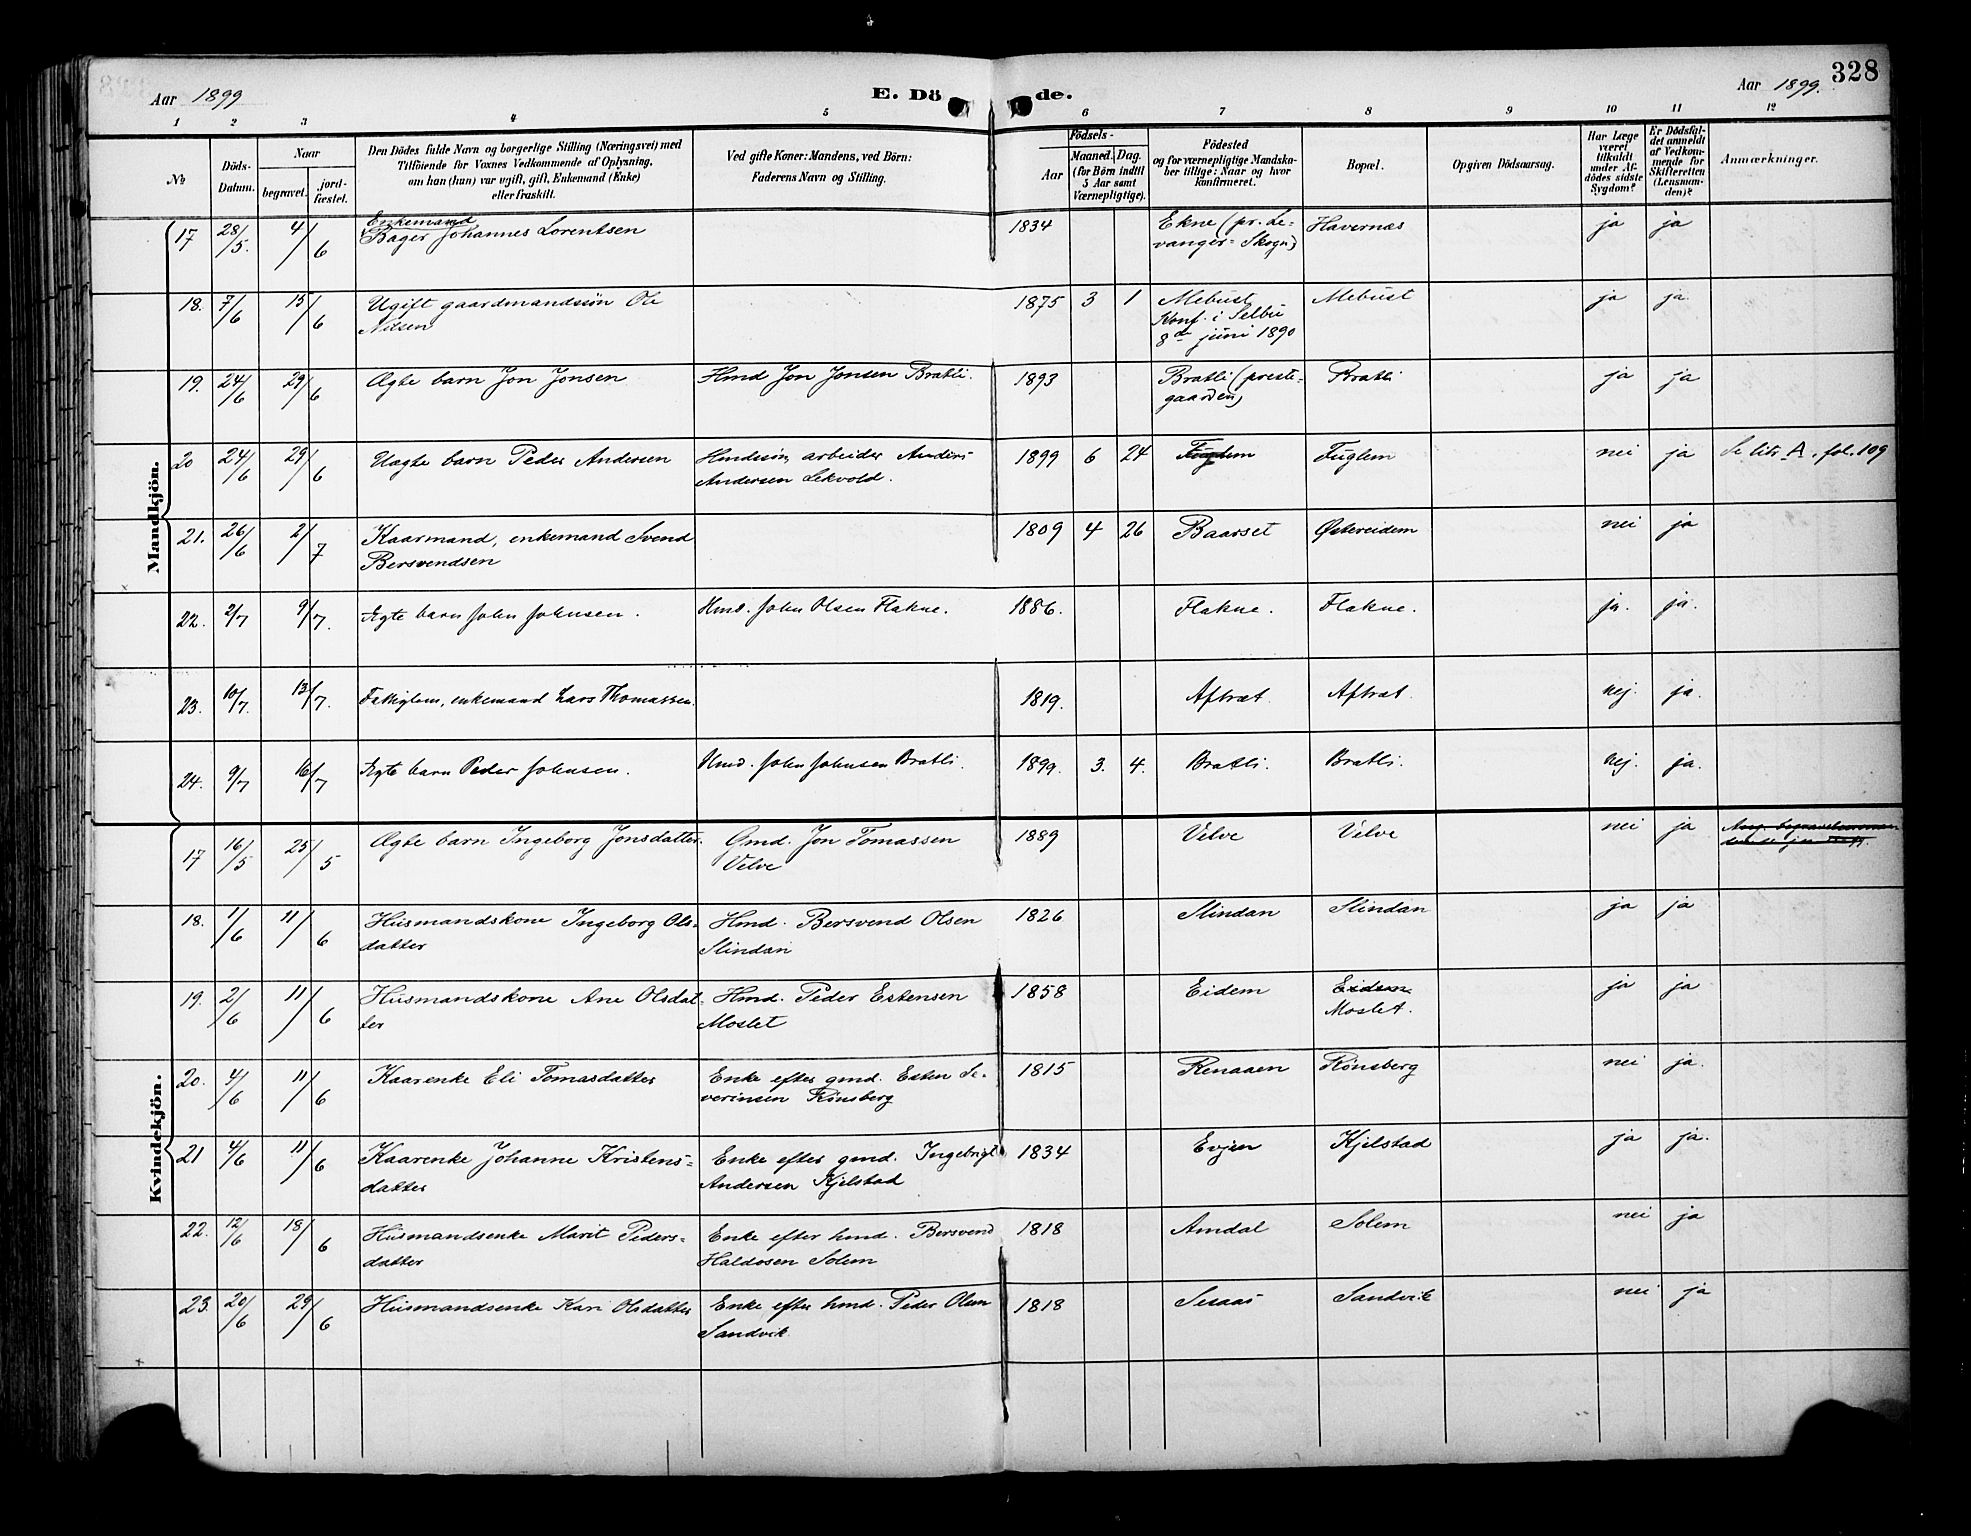 328
Aar 1899
E. Dö de.
Aar 1899.
1 2 3 4 5 6 7 8 9 10 11 12
No
Döds-Datum.
Naar
begravet.
jordfæstet.
Den Dödes fulde Navn og borgerlige Stilling (Næringsvei) med
Tilföiende for Voxnes Vedkommende af Oplysning,
om han (hun) var ugift, gift, Enkemand (Enke)
eller fraskilt.
Ved gifte Koner: Mandens, ved Börn:
Faderens Navn og Stilling.
Födsels-
Aar
Maaned. Dag.
(for Börn indtil
5 Aar samt
Værnepligtige).
Födested
og for værnepligtige Mandska-
ber tillige: Naar og hvor
konfirmeret.
Bopæl.
Opgiven Dödsaarsag.
Har Læge
været
tilkaldt
under Af-
dödes sidste
Sygdom?
Er Dödsfal-
det anmeldt
af Vedkom-
mende for
Skifteretten
(Lensman-
den)?
Anmærkninger.
Mandkjön.
17 28/5. 4/6 Enkemand
Bager Johannes Lorentsen 1834 Ekne (pr. Le-
vanger=Skogn) Havernæs ja ja
18. 7/6 15/6 Ugift gaardmandssön Ole
Nilsen 1875 3 1 Mebust
Konf. i Selbu
8de juni 1890 Mebust ja ja.
19. 24/6 29/6 Ægte barn Jon Jonsen Hmd Jon Jonsen Bratli. 1893 Bratli (preste-
gaarden) Bratli ja ja
20 24/6 29/6 Uægte barn Peder Andersen Hmdssön, arbeider Anders
Andersen Lekvold. 1899 6 24 Fuglem Fuglem nei ja Se litr A. fol. 109
21. 26/6 2/7 Kaarmand, enkemand Svend
Bersvendsen 1809 4 26 Baarset Østereidem nei ja
22. 2/7 9/7. Ægte barn John Johnsen. Hmd. John Olsen Flakne. 1886. Flakne. Flakne. ja. ja.
23. 10/7. 13/7. Fattiglem, enkemand Lars Thomassen. 1819. Aftret. Aftret. nej. ja.
24. 9/7 16/7 Ægte barn Peder Johnsen. Hmd. John Johnsen Bratli. 1899. 3. 4. Bratli. Bratli. nej. ja.
Kvindekjön.
17 16/5 25/5 Ægte barn Ingeborg Jonsdatter. Gmd. Jon Tomassen
Velve 1889 Velve Velve nei ja
18. 1/6 11/6 Husmandskone Ingeborg Ols-
datter Hmd. Bersvend Olsen
Slindan 1826 Slindan Slindan ja ja
19. 2/6 11/6 Husmandskone Ane Olsdat-
ter Hmd. Peder Estensen
Moslet 1858 Eidem Eidem
Moslet. ja ja
20. 4/6 11/6 Kaarenke Eli Tomasdatter Enke efter gmd. Esten Se-
verinsen Rønsberg 1815 Renaaen Rønsberg nei ja.
21 4/6 11/6 Kaarenke Johanne Kristens=
datter Enke efter gmd. Ingebrigt
Andersen Kjelstad 1834 Evjen Kjelstad ja ja.
22. 12/6 18/6 Husmandsenke Marit Peders=
datter Enke efter hmd. Bersvend
Haldosen Solem 1818 Amdal Solem nei ja
23. 20/6 29/6 Husmandsenke Kari Olsdatter Enke efter hmd. Peder Olsen
Sandvik 1818 Sesaas Sandvik nei ja